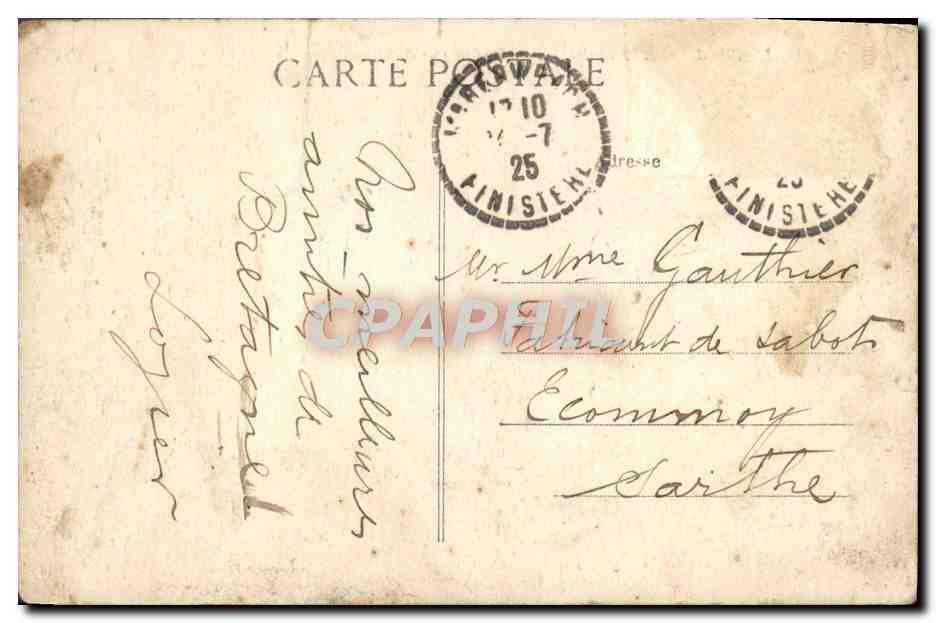 CARTE POSTALE
10
-7
25
FINISTERE
Adresse
25
FINISTERE
Mr Mme Gauthier
Fabricant de sabots
Ecommoy
Sarthe
Nos meilleures
amitiés de
Bretagne
CPAPHIL